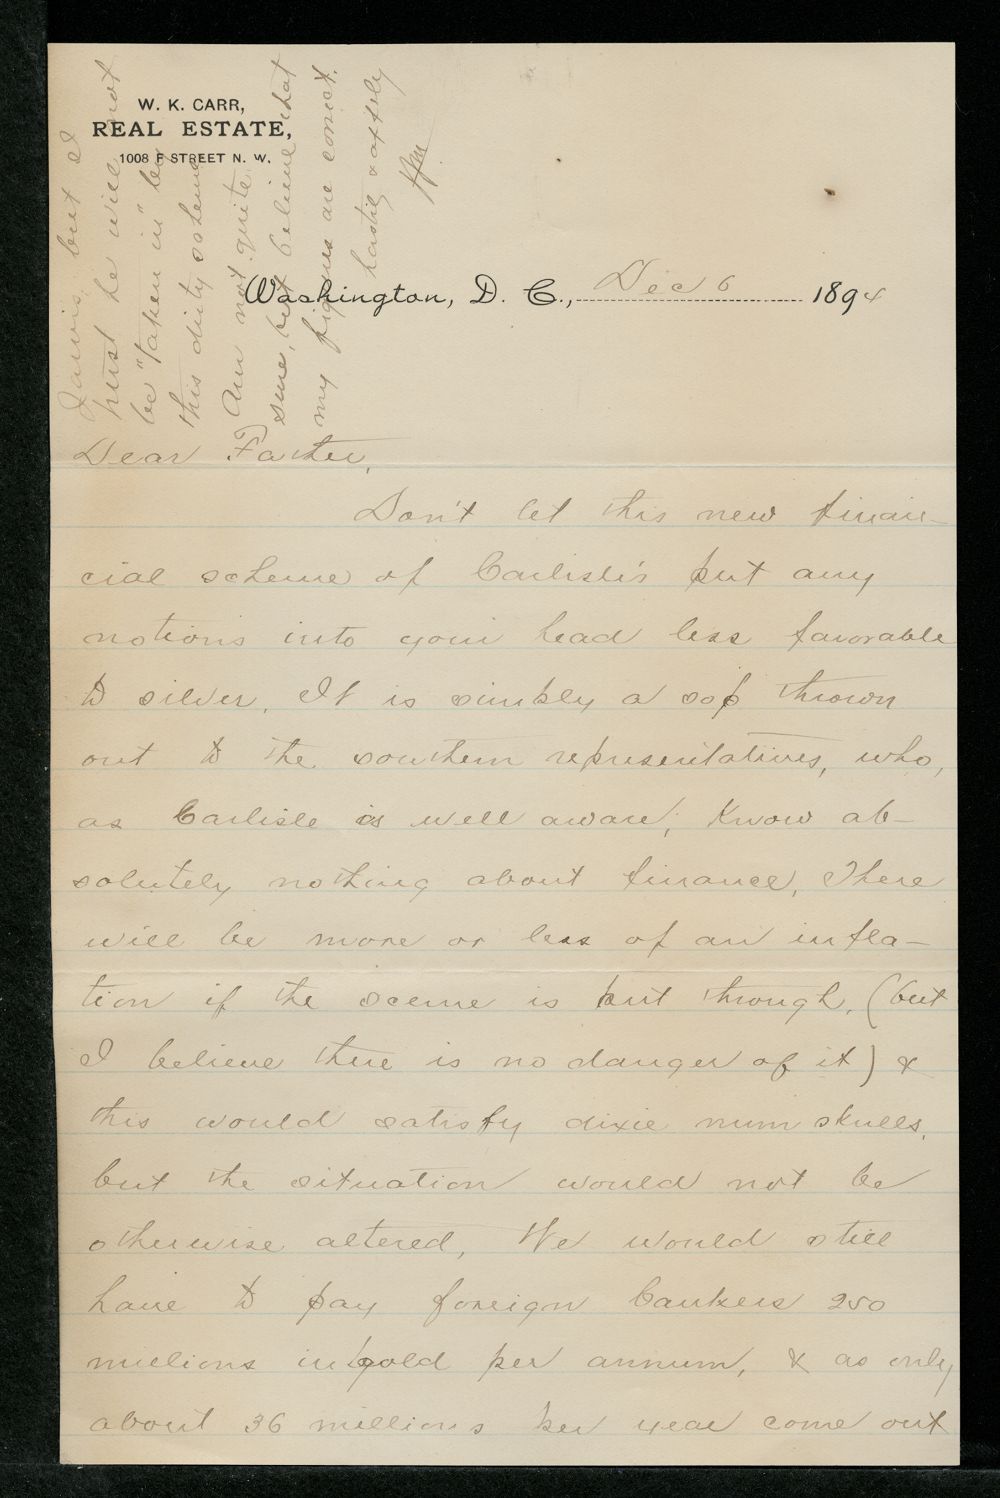 W. K. CARR,
REAL ESTATE,
1008 F STREET N. W.
Washington, D. C., Dec 6 1894
Dear Father,
Don't let this new finan-
cial scheme of Carlisle's put any
notions into your head less favorable
to silver. It is simply a sop thrown
out to the southern representatives, who,
as Carlisle is well aware, know ab-
solutely nothing about finance. There
will be more or less of an infla-
tion if the sceme is put through, (but
I believe there is no danger of it) &
this would satisfy dixie numskulls,
but the situation would not be
otherwise altered. We would still
have to pay foreign bankers 250
millions in gold per annum, & as only
about 36 millions per year come out
but I
he will not
be "taken in" by
this dirty scheme
Am not quite
sure, but believe that
my figures are correct.
hastily &